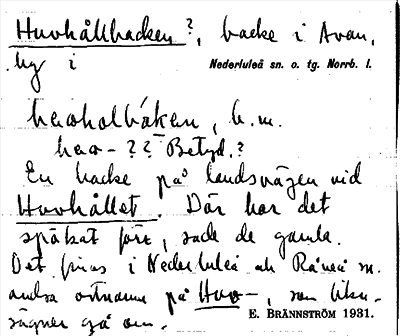 Huvhållbacken?, backe i Avan,
by i Nederluleå sn. o. tg. Norrb. l.
b.m.
?? Betyd.?
En backe på landsvägen vid
Huvhållet. Där har det
spökat förr, sade de gamla.
Det finns i Nederluleå och Råneå sn.
andra ortnamn på Huv-, som
sägner gå om.
E. BRÄNNSTRÖM 1931.